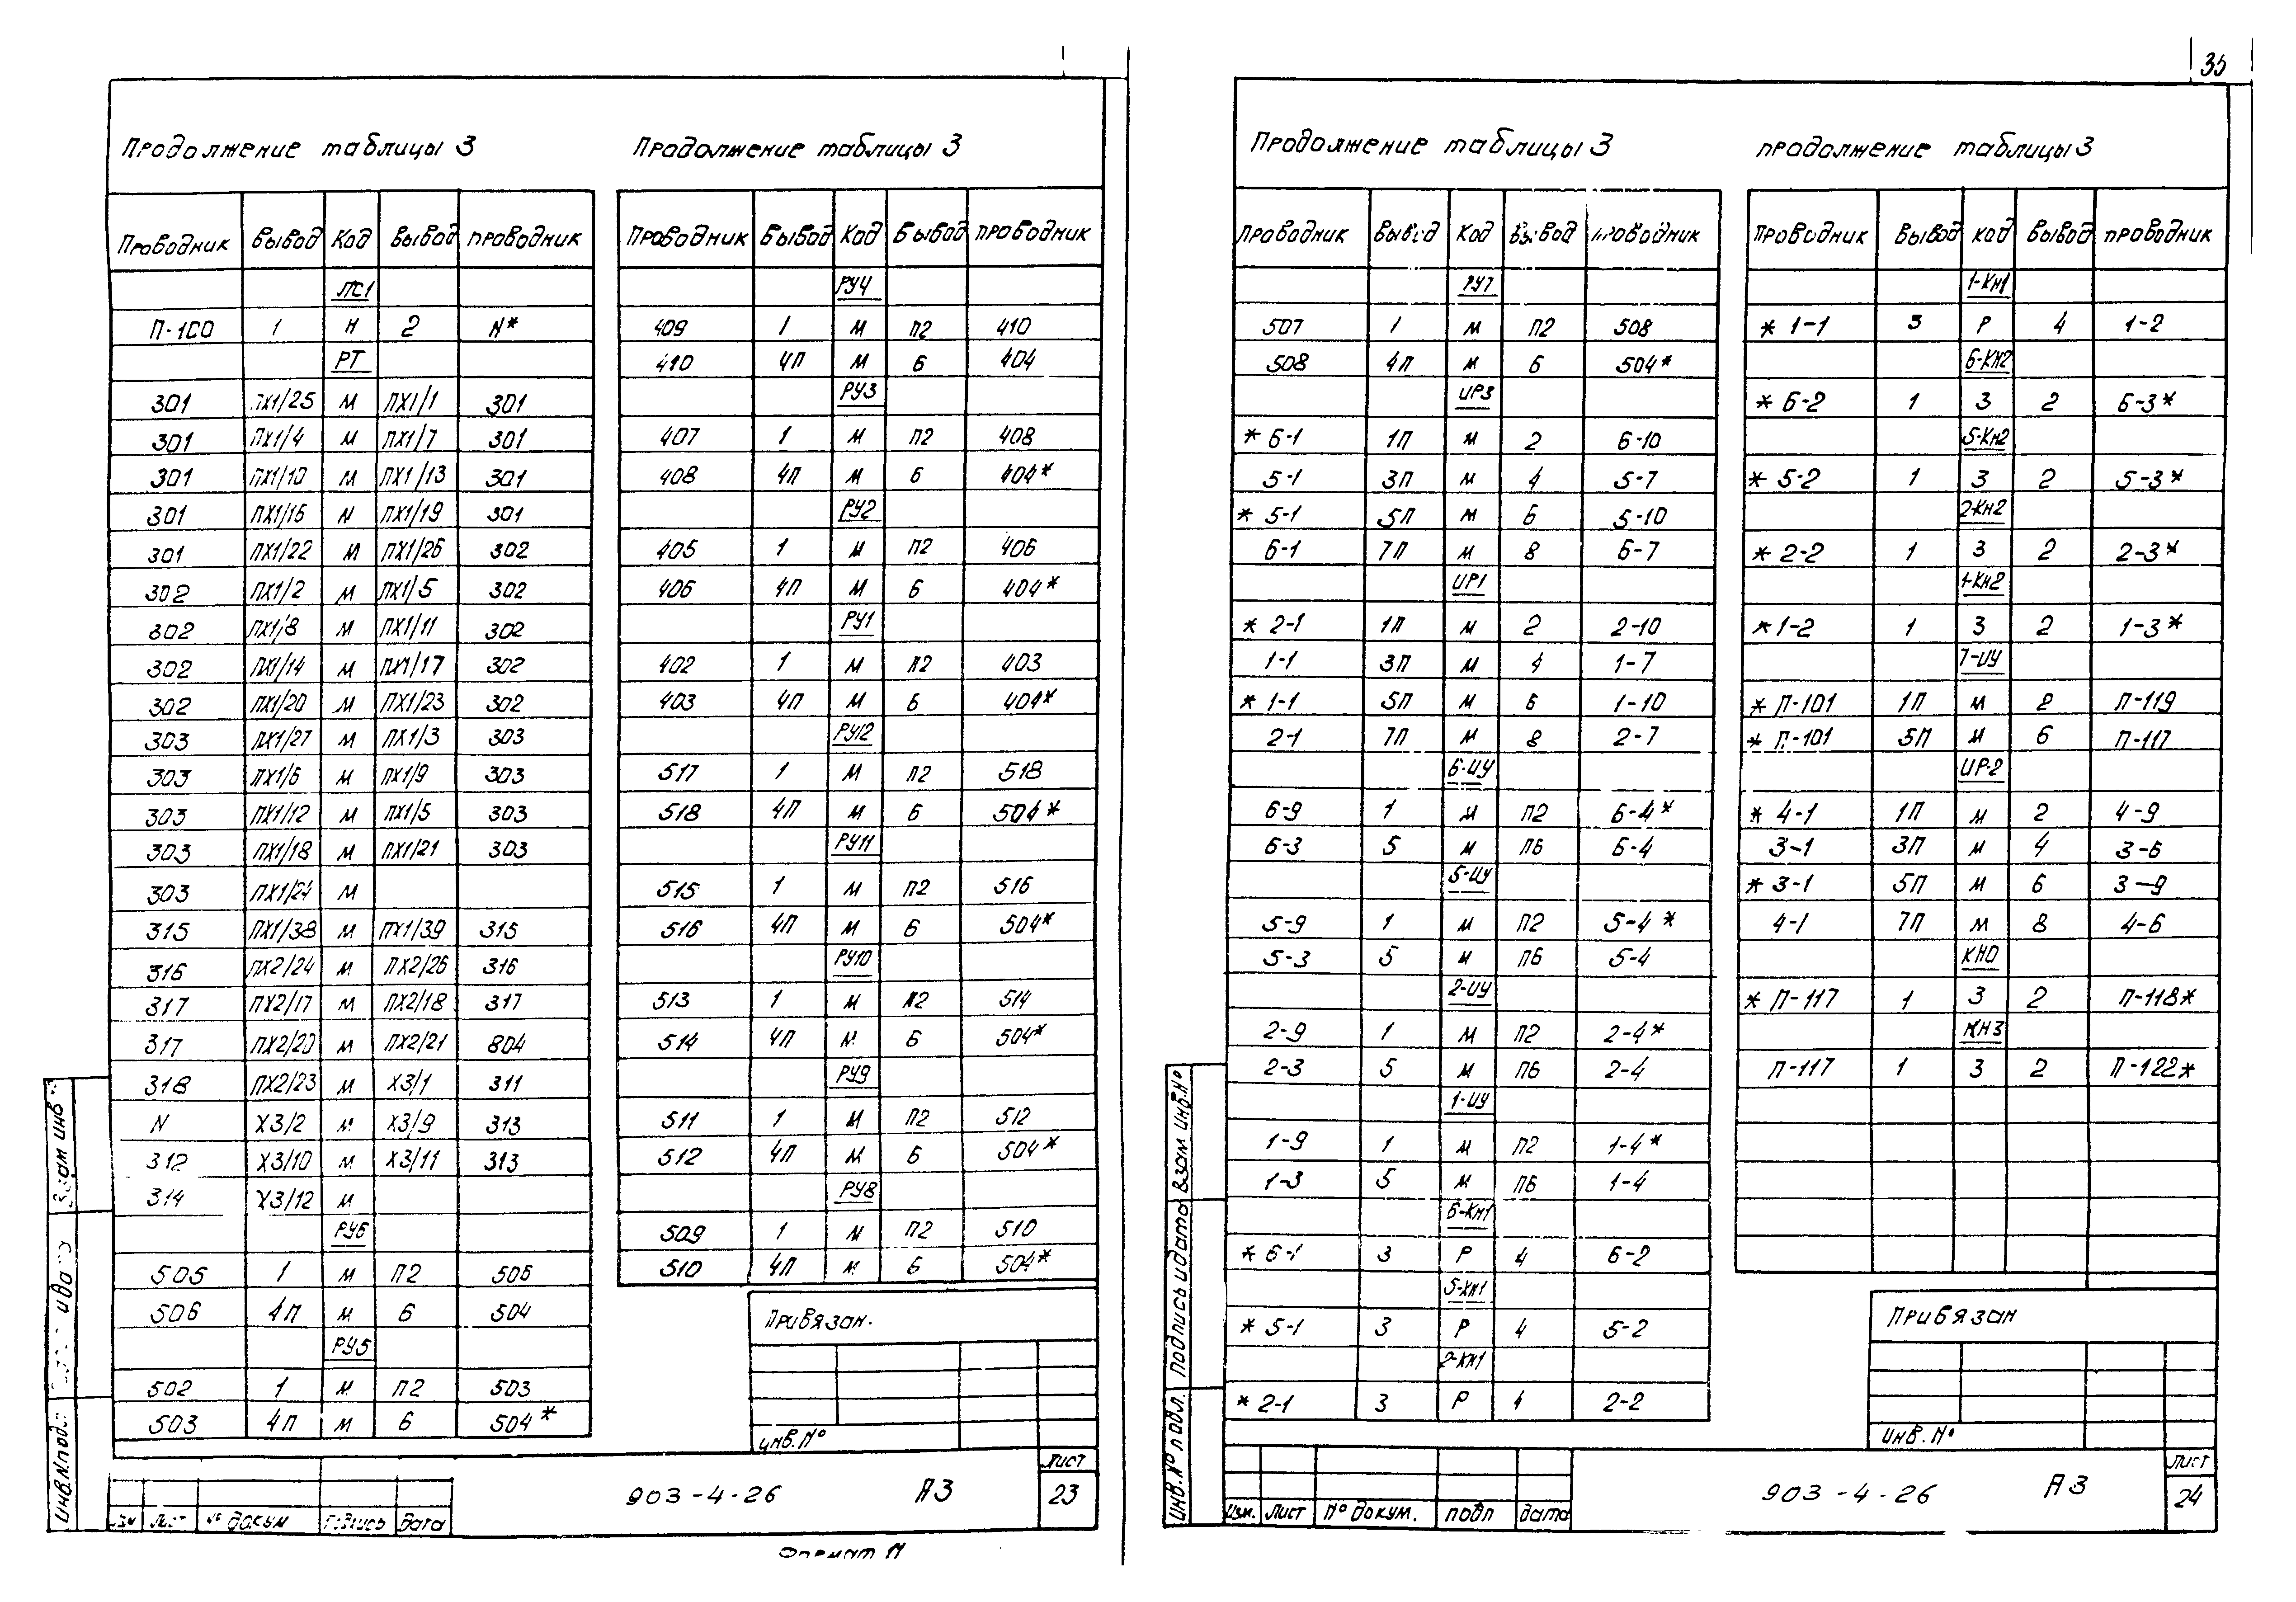 35
Продолжение таблицы 3
Проводник Вывод Код Вывод проводник
ЛС1
П-100 1 Н 2 N*
РТ
301 ПХ1/25 М ПХ1/1 301
301 ПХ1/4 М ПХ1/7 301
301 ПХ1/10 М ПХ1/13 301
301 ПХ1/16 ПХ1/19 301
301 ПХ1/22 М ПХ1/26 302
302 ПХ1/2 М ПХ1/5 302
302 ПХ1/8 М ПХ1/11 302
302 ПХ1/14 М ПХ1/17 302
302 ПХ1/20 М ПХ1/23 302
303 ПХ1/27 М ПХ1/3 303
303 ПХ1/6 М ПХ1/9 303
303 ПХ1/12 М ПХ1/5 303
303 ПХ1/18 М ПХ1/21 303
303 ПХ1/24 М
315 ПХ1/38 М ПХ1/39 315
316 ПХ2/24 М ПХ2/26 316
317 ПХ2/17 М ПХ2/18 317
317 ПХ2/20 М ПХ2/21 804
318 ПХ2/23 М Х3/1 311
N Х3/2 М Х3/9 313
312 Х3/10 М Х3/11 313
314 Х3/12 М
РУ6
505 1 М П2 506
506 4П М 6 504
РУ5
502 1 М П2 503
503 4П М 6 504*
Продолжение таблицы 3
Проводник Вывод Код Вывод проводник
РУ4
409 1 М П2 410
410 4П М 6 404
РУ3
407 1 М П2 408
408 4П М 6 404*
РУ2
405 1 М П2 406
406 4П М 6 404*
РУ1
402 1 М П2 403
403 4П М 6 404*
РУ12
517 1 М П2 518
518 4П М 6 504*
РУ11
515 1 М П2 516
516 4П М 6 504*
РУ10
513 1 М П2 514
514 4П М 6 504*
РУ9
511 1 М П2 512
512 4П М 6 504*
РУ8
509 1 М П2 510
510 4П М 6 504*
Привязан.
инв.№
Взам инв
инв.N.подл
изм лист № докум подпись дата
903-4-26 А3
Лист
23
Формат 11
Продолжение таблицы 3
Проводник Вывод Код Вывод проводник
РУ7
507 1 М П2 508
508 4П М 6 504*
ИР3
* 6-1 1П М 2 6-10
5-1 3П М 4 5-7
* 5-1 5П М 6 5-10
6-1 7П М 8 6-7
ИР1
* 2-1 1П М 2 2-10
1-1 3П М 4 1-7
* 1-1 5П М 6 1-10
2-1 7П М 8 2-7
6-ИУ
6-9 1 М П2 6-4*
6-3 5 М П6 6-4
5-ИУ
5-9 1 М П2 5-4*
5-3 5 М П6 5-4
2-ИУ
2-9 1 М П2 2-4*
2-3 5 М П6 2-4
1-ИУ
1-9 1 М П2 1-4*
1-3 5 М П6 1-4
6-Кн1
* 6-1 3 Р 4 6-2
5-Кн1
* 5-1 3 Р 4 5-2
2-Кн1
* 2-1 3 Р 4 2-2
продолжение таблицы 3
Проводник Вывод Код Вывод проводник
1-Кн1
* 1-1 3 Р 4 1-2
6-Кн2
* 6-2 1 3 2 6-3*
5-Кн2
* 5-2 1 3 2 5-3*
2-Кн2
* 2-2 1 3 2 2-3*
1-Кн2
* 1-2 1 3 2 1-3*
7-ИУ
* П-101 1П М 2 П-119
* П-101 5П М 6 П-117
ИР-2
* 4-1 1П М 2 4-9
3-1 3П М 4 3-6
* 3-1 5П М 6 3-9
4-1 7П М 8 4-6
КНО
* П-117 1 3 2 П-118*
КН3
П-117 1 3 2 П-122*
Привязан
Инв.№
Взам инв.№
Подпись и дата
Инв.№ подл.
Изм. Лист № докум. подп дата
903-4-26 А3
Лист
24